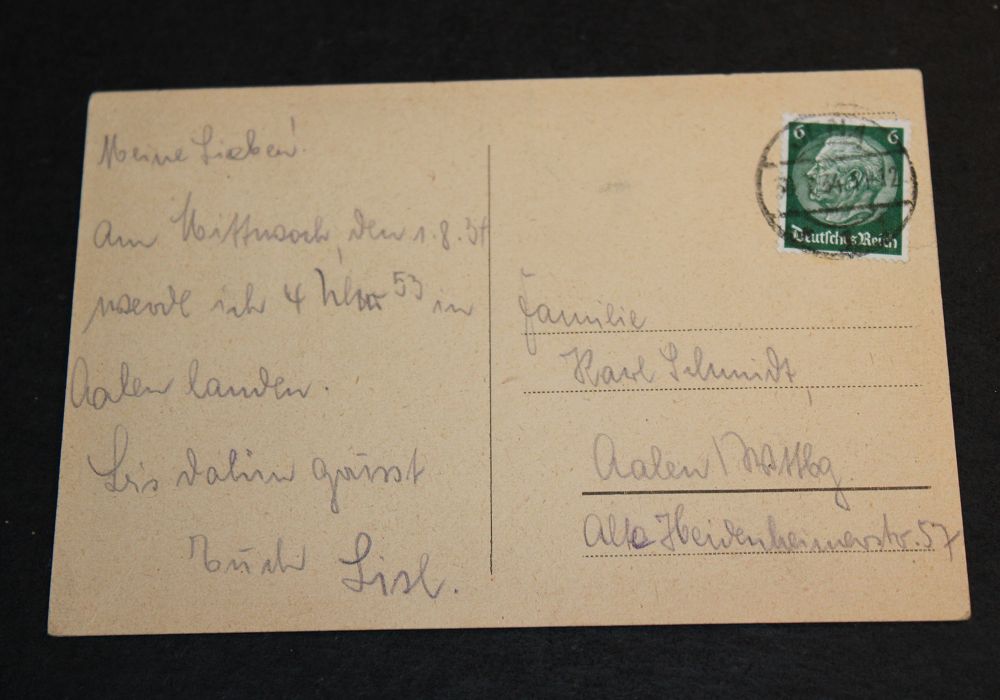 Meine Lieben!
Am Mittwoch, den 1.8.34
werde ich 4 Uhr 53 in
Aalen landen.
Bis dahin grüsst
Euch Lisl.
6 6
Deutsches Reich
Familie
Karl Schmidt,
Aalen / Wttbg
Alte Heidenheimerstr. 57